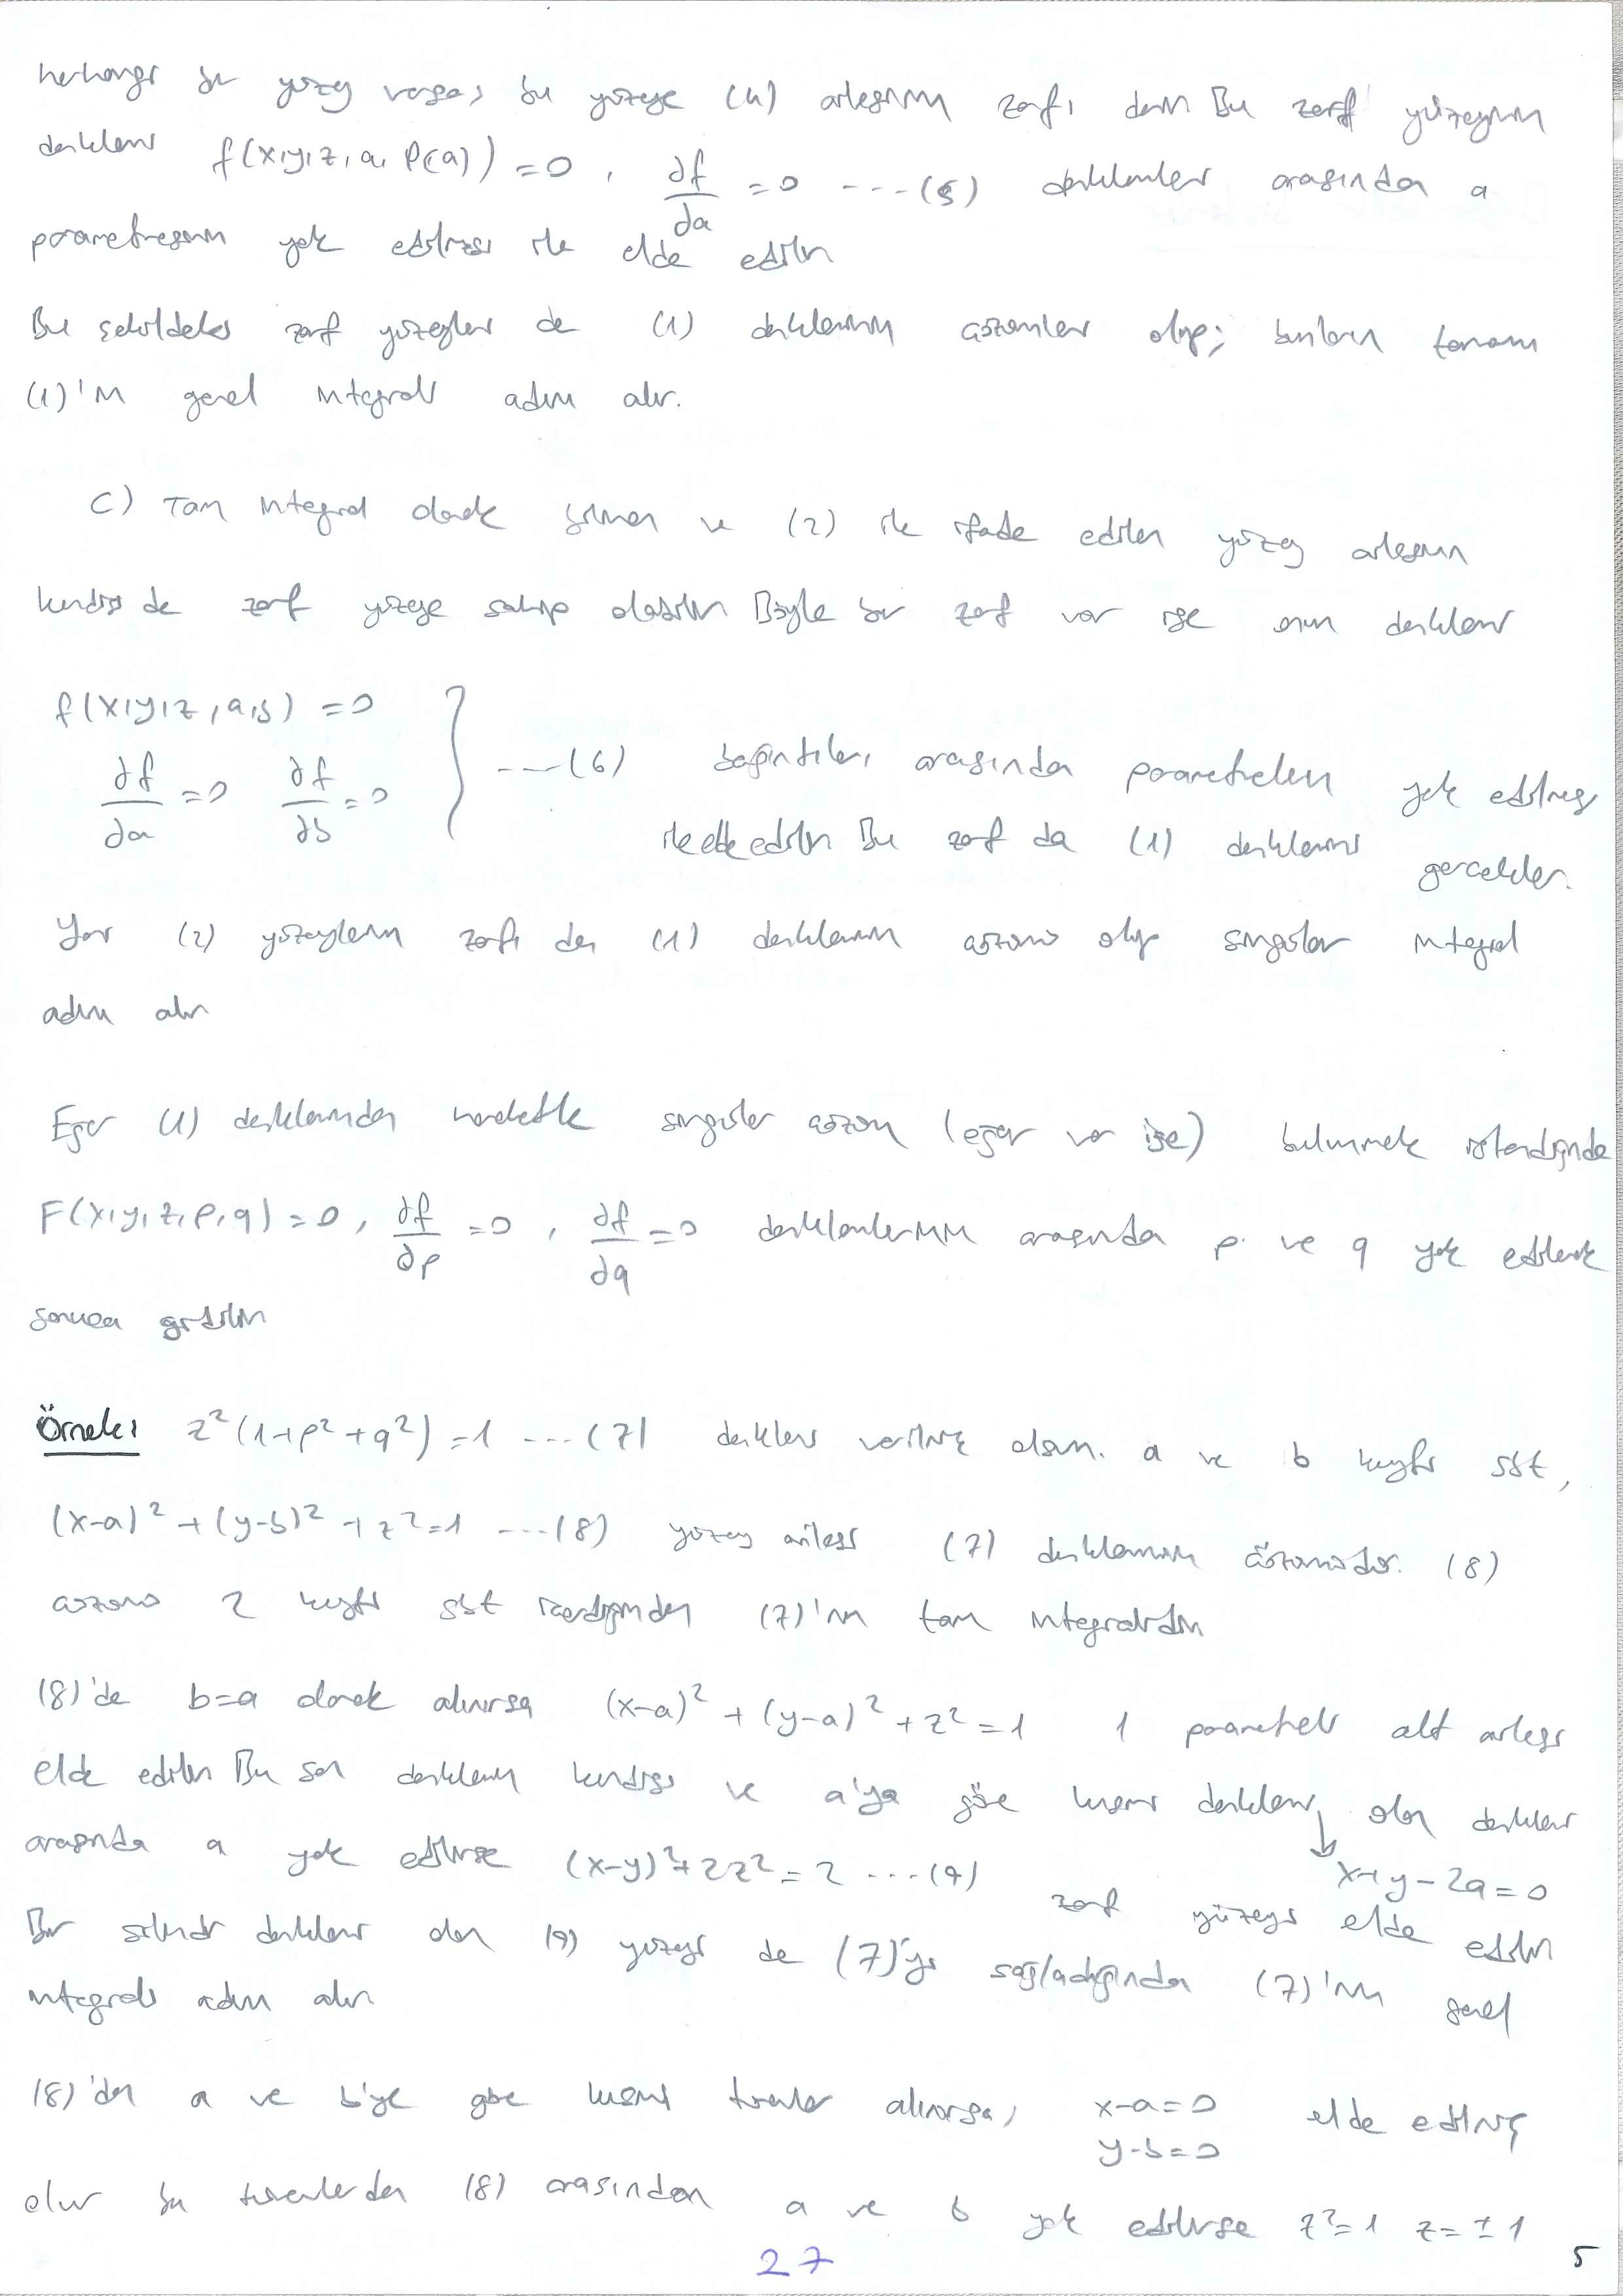 herhangi bir yüzey varsa, bu yüzeye (4) ailesinin zarfı denir Bu zarf yüzeyinin
denklemi f(x,y,z,a,φ(a))=0, ∂f/∂a =0 ---(5) denklemler arasından a
parametresinin yok edilmesi ile elde edilir
Bu şekildeki zarf yüzeyler de (1) denkleminin çözümleri olup; bunların tamamı
(1)'in genel integrali adını alır.
C) Tam integral olarak bilinen ve (2) ile ifade edilen yüzey ailesinin
kendisi de zarf yüzeye sahip olabilir Böyle bir zarf var ise onun denklemi
f(x,y,z,a,b)=0
∂f/∂a =0 ∂f/∂b =0 } ---(6) bağıntıları arasından parametreleri yok edilmesi
ile elde edilir Bu zarf da (1) denklemini gerçekler.
Yani (2) yüzeylerin zarfı da (1) denkleminin çözümü olup singüler integral
adını alır
Eğer (1) denkleminden hareketle singüler çözüm (eğer var ise) bulunmak istendiğinde
F(x,y,z,p,q)=0, ∂f/∂p =0, ∂f/∂q =0 denklemlerinin arasından p ve q yok edilerek
sonuca gidilir
Örnek: z²(1+p²+q²)=1 ---(7) denklemi verilmiş olsun. a ve b keyfi sbt,
(x-a)²+(y-b)²+z²=1 ---(8) yüzey ailesi (7) denkleminin çözümüdür. (8)
çözümü 2 keyfi sbt içerdiğinden (7)'nin tam integralidir
(8)'de b=a olarak alınırsa (x-a)²+(y-a)²+z²=1 1 parametreli alt ailesi
elde edilir Bu son denklemin kendisi ve a'ya göre kısmi denklemi olan denklemi
↓ x+y-2a=0
arasında a yok edilirse (x-y)²+2z²=2 ---(9) zarf yüzeyi elde edilir
Bir silindir denklemi olan (9) yüzeyi de (7)'yi sağladığından (7)'nin genel
integrali adını alır
(8)'den a ve b'ye göre kısmi türevler alınırsa, x-a=0 elde edilmiş
y-b=0
olur bu türevlerden (8) arasından a ve b yok edilirse z²=1 z=±1
27
5